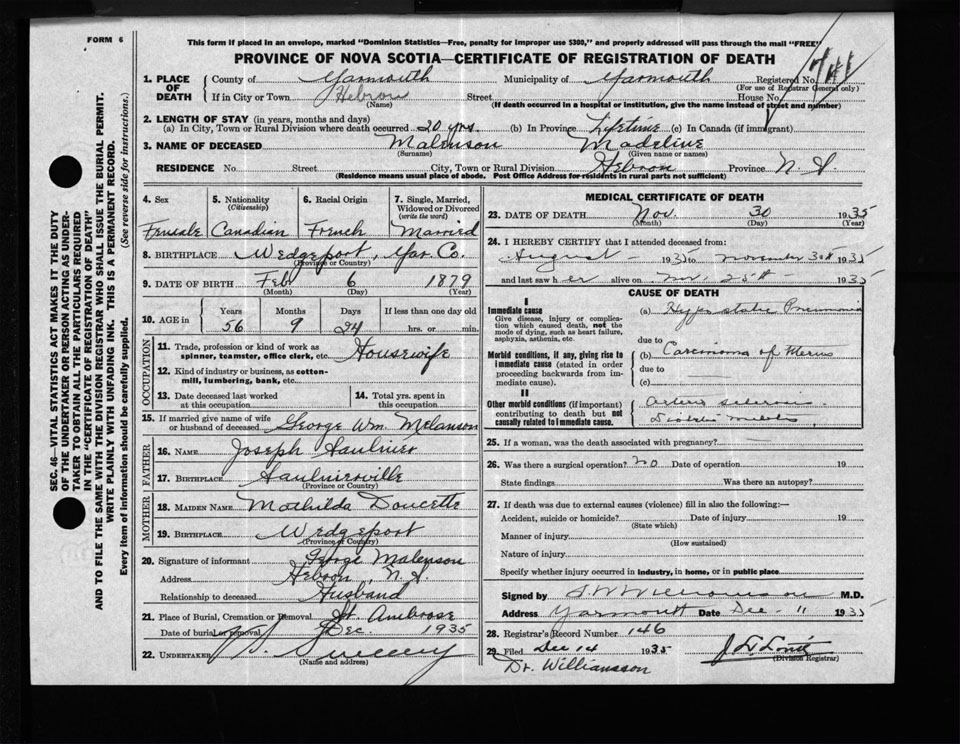 FORM 6
This form if placed in an envelope, marked "Dominion Statistics—Free, penalty for improper use $300," and properly addressed will pass through the mail "FREE"
PROVINCE OF NOVA SCOTIA—CERTIFICATE OF REGISTRATION OF DEATH
1. PLACE OF DEATH County of Yarmouth Municipality of Yarmouth Registered No.
(For use of Registrar General only)
If in City or Town Hebron Street House No.
(Name) (If death occurred in a hospital or institution, give the name instead of street and number)
2. LENGTH OF STAY (in years, months and days)
(a) In City, Town or Rural Division where death occurred 20 yrs. (b) In Province Lifetime (c) In Canada (if immigrant)
3. NAME OF DECEASED Malenson Madeline
(Surname) (Given name or names)
RESIDENCE No. Street City, Town or Rural Division Hebron Province N.S.
(Residence means usual place of abode. Post Office Address for residents in rural parts not sufficient)
4. Sex 5. Nationality (Citizenship) 6. Racial Origin 7. Single, Married, Widowed or Divorced (write the word)
Female Canadian French Married
8. BIRTHPLACE Wedgeport, Yar Co.
(Province or Country)
9. DATE OF BIRTH Feb 6 1879
(Month) (Day) (Year)
10. AGE in Years Months Days If less than one day old
56 9 24 hrs. or min.
OCCUPATION
11. Trade, profession or kind of work as spinner, teamster, office clerk, etc. Housewife
12. Kind of industry or business, as cotton-mill, lumbering, bank, etc.
13. Date deceased last worked at this occupation 14. Total yrs. spent in this occupation
15. If married give name of wife or husband of deceased George Wm. Melanson
FATHER
16. NAME Joseph Saulnier
17. BIRTHPLACE Saulnierville
(Province or Country)
MOTHER
18. MAIDEN NAME Mathilda Doucette
19. BIRTHPLACE Wedgeport
(Province or Country)
20. Signature of informant George Malenson
Address Hebron, N.S.
Relationship to deceased Husband
21. Place of Burial, Cremation or Removal St. Ambrose
Date of burial or removal Dec. 1935
22. UNDERTAKER Sweeny
(Name and address)
MEDICAL CERTIFICATE OF DEATH
23. DATE OF DEATH Nov. 30 1935
(Month) (Day) (Year)
24. I HEREBY CERTIFY that I attended deceased from:
August 193 to November 30th 1935
and last saw her alive on Nov. 25th 1935
CAUSE OF DEATH
I
Immediate cause (a) Hypostatic Pneumonia
Give disease, injury or complication which caused death, not the mode of dying, such as heart failure, asphyxia, asthenia, etc.
due to
Morbid conditions, if any, giving rise to immediate cause (stated in order proceeding backwards from immediate cause). (b) Carcinoma of Uterus
due to
(c)
II
Other morbid conditions (if important) contributing to death but not causally related to immediate cause. Arterio sclerosis
25. If a woman, was the death associated with pregnancy?
26. Was there a surgical operation? no Date of operation 19
State findings Was there an autopsy?
27. If death was due to external causes (violence) fill in also the following:—
Accident, suicide or homicide? Date of injury 19
(State which)
Manner of injury
(How sustained)
Nature of injury
Specify whether injury occurred in industry, in home, or in public place
Signed by M.D.
Address Yarmouth Date Dec - 11 1935
28. Registrar's Record Number 146
29. Filed Dec 14 1935
(Division Registrar)
Dr. Williamson
SEC. 46—VITAL STATISTICS ACT MAKES IT THE DUTY
OF THE UNDERTAKER OR PERSON ACTING AS UNDER-
TAKER TO OBTAIN ALL THE PARTICULARS REQUIRED
IN THE "CERTIFICATE OF REGISTRATION OF DEATH"
AND TO FILE THE SAME WITH THE DIVISION REGISTRAR WHO SHALL ISSUE THE BURIAL PERMIT.
WRITE PLAINLY WITH UNFADING INK. THIS IS A PERMANENT RECORD.
Every item of information should be carefully supplied. (See reverse side for instructions.)